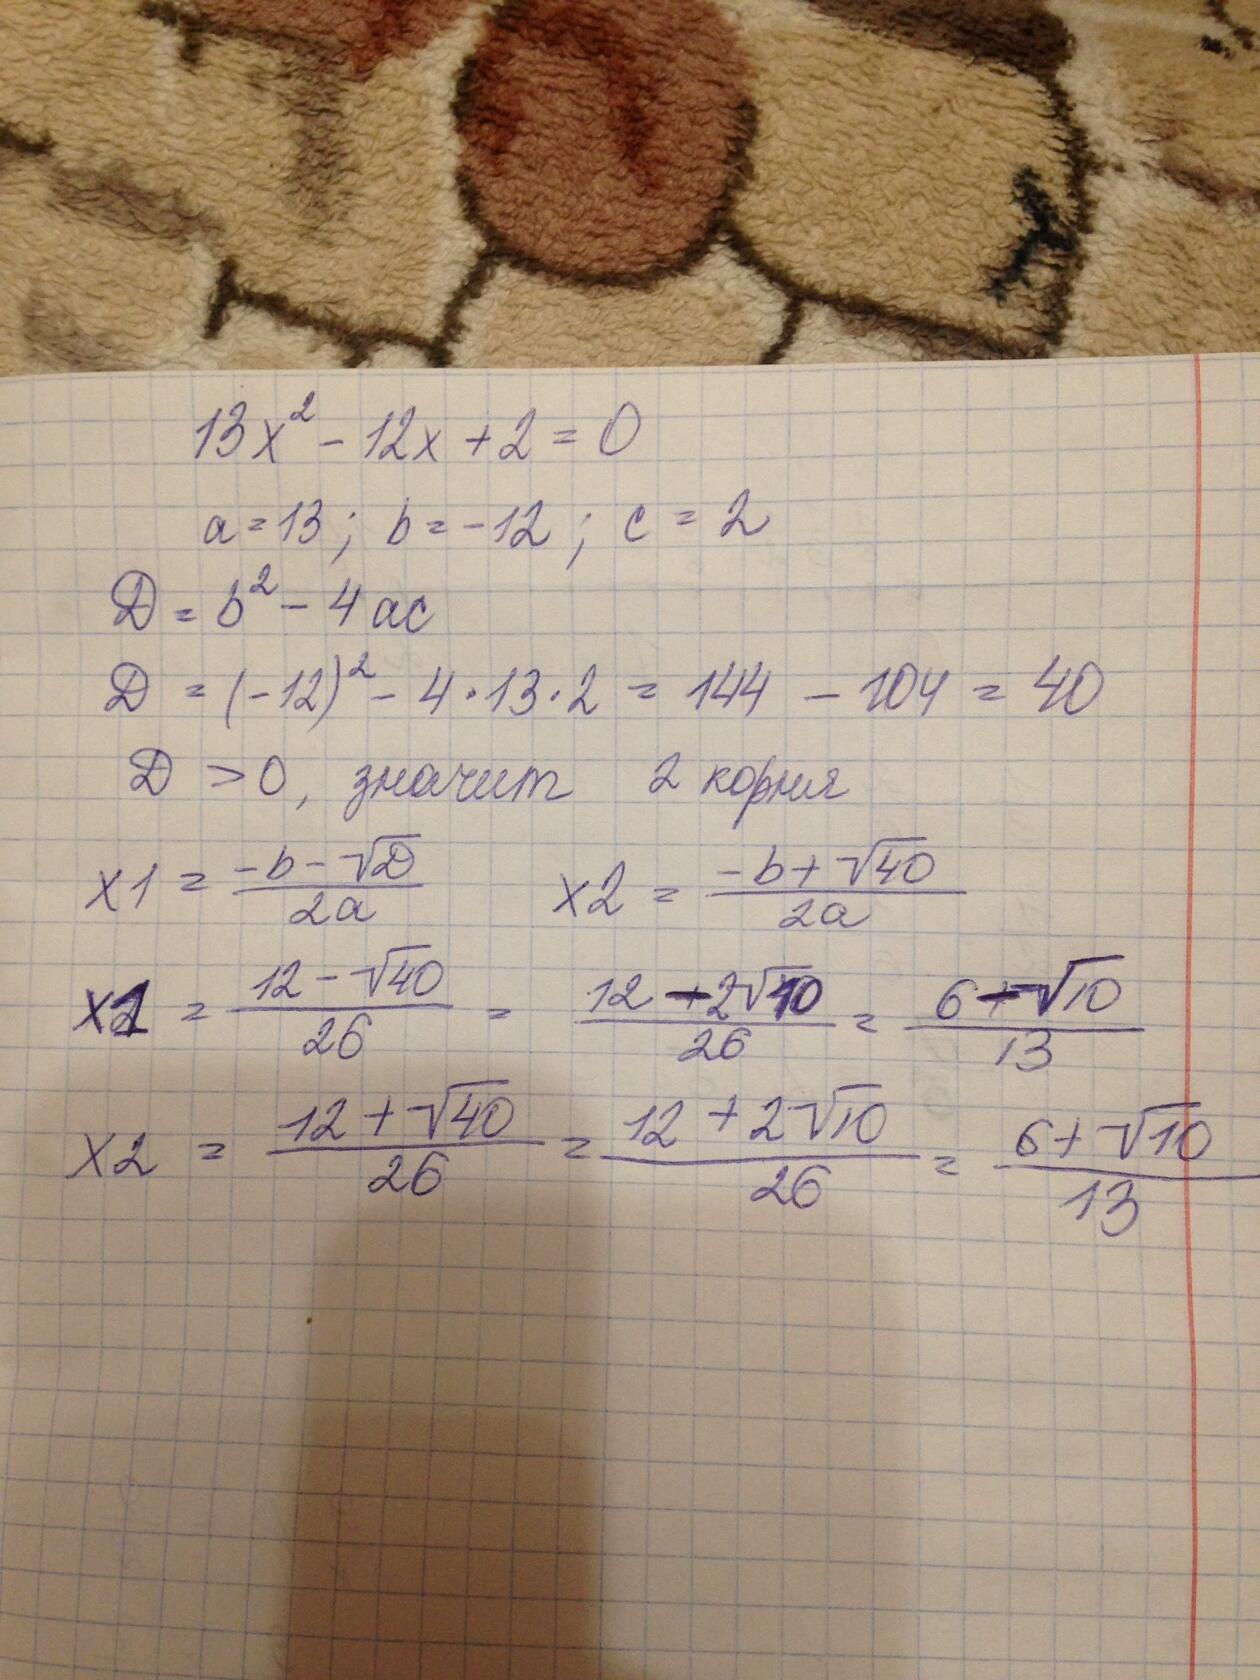 13x² - 12x + 2 = 0
a = 13; b = -12; c = 2
D = b² - 4ac
D = (-12)² - 4·13·2 = 144 - 104 = 40
D > 0, значит 2 корня
x1 = (-b - √D)/2a x2 = (-b + √40)/2a
x1 = (12 - √40)/26 = (12 - 2√10)/26 = (6 - √10)/13
x2 = (12 + √40)/26 = (12 + 2√10)/26 = (6 + √10)/13